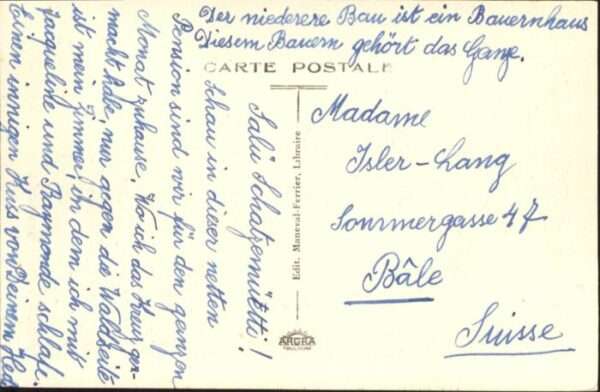 Der niederere Bau ist ein Bauernhaus
Diesem Bauern gehört das Ganze.
CARTE POSTALE
Salü Schatzemüetti!
Schau in dieser netten
Pension sind wir für den ganzen
Monat zuhause. Wo ich das Kreuz ge-
macht habe, nur gegen die Waldseite
ist mein Zimmer, in dem ich mit
Jacqueline und Raymonde schlafe.
Einen innigen Kuss von Deinem Heg
Edit. Maneval-Ferrier, Libraire
Madame
Isler-Lang
Sommergasse 47
Bâle
Suisse
ARGRA